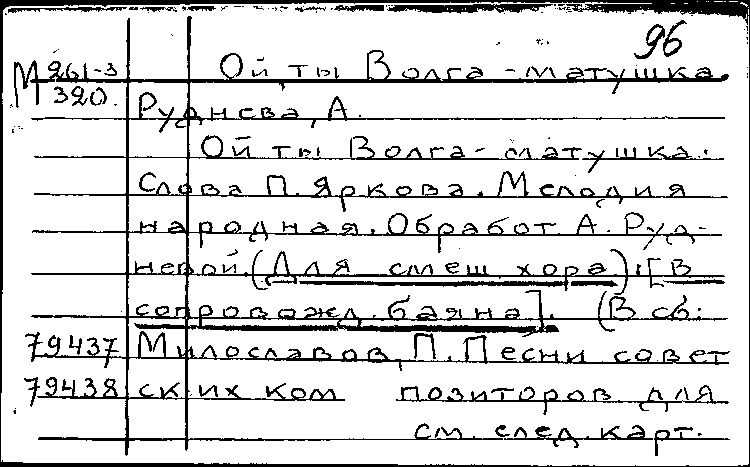 96
М 261-3
320.
Ой, ты Волга-матушка.
Руднева, А.
Ой ты Волга-матушка.
Слова П. Яркова. Мелодия
народная. Обработ А. Руд-
невой. (Для смеш хора). [В
сопровожд. баяна]. (В сб:
79437 Милославов, П. Песни совет
79438 ских ком позиторов для
см. след. карт.